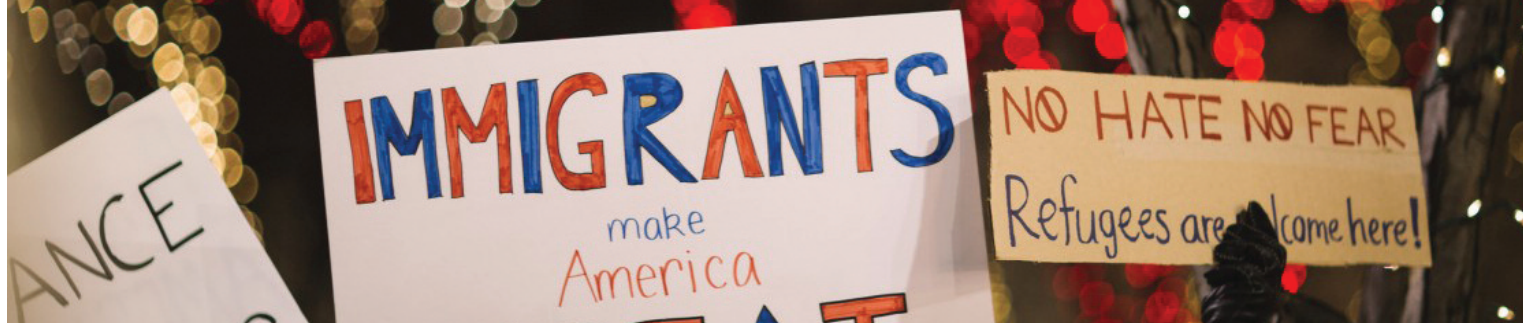 ANCE
IMMIGRANTS
make
America
NO HATE NO FEAR
Refugees are here!